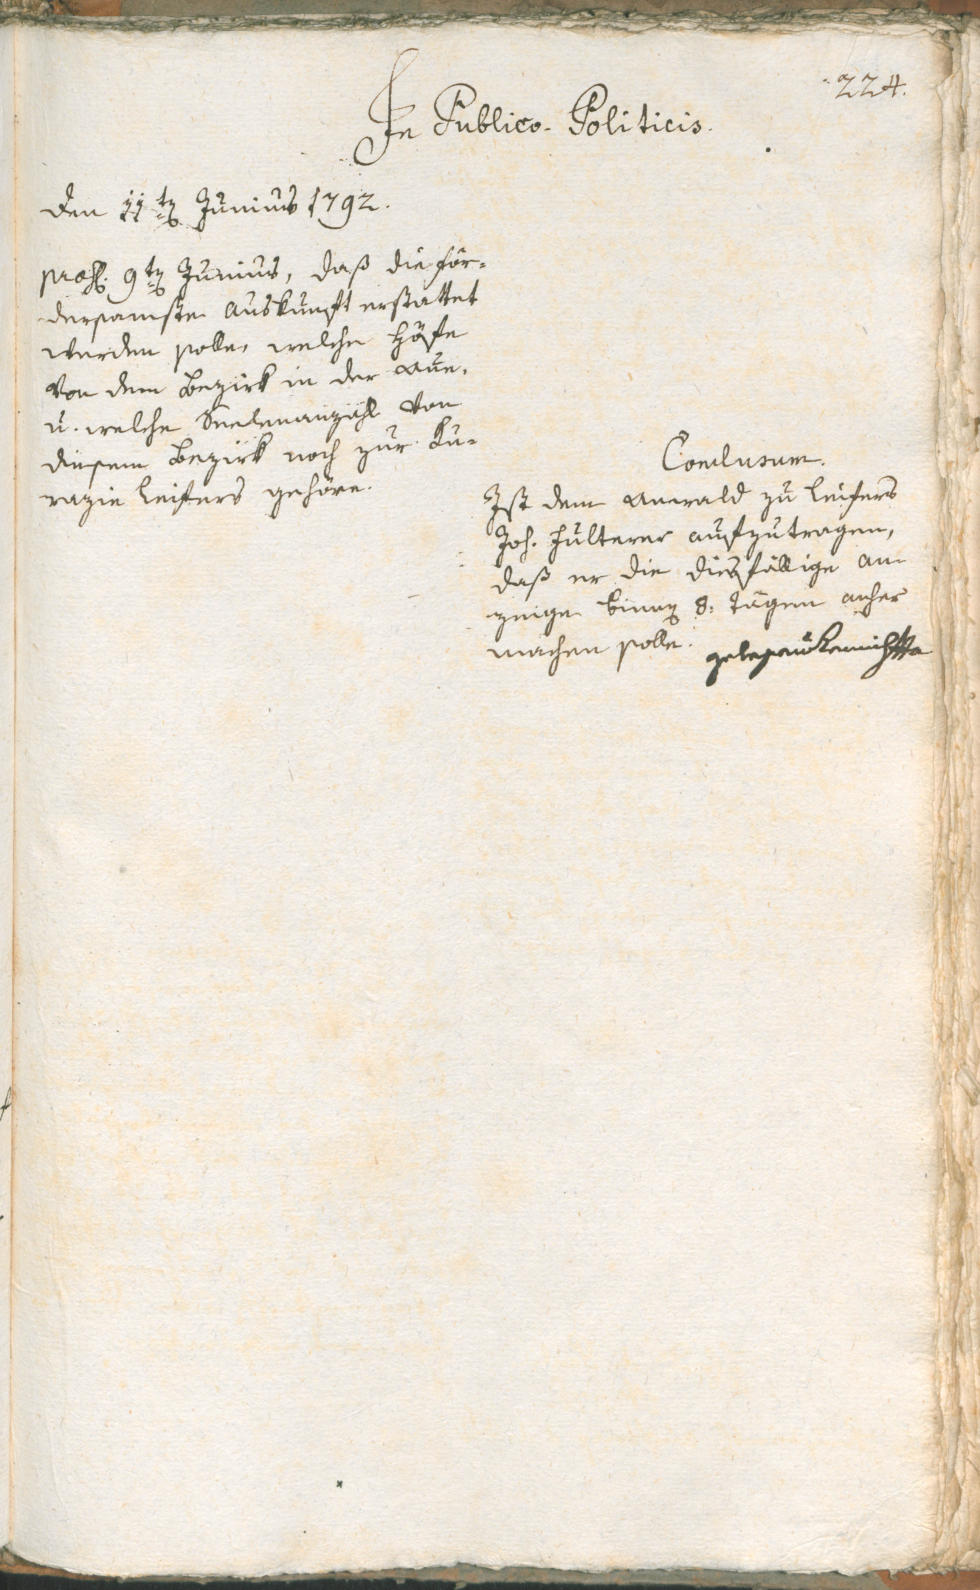 224.
In Publico-Politicis.
Den 11ten Junius 1792.
praes. 9ten Junius, daß die för=
dersamste Auskunft erstattet
werden solle, welche Höfe
von dem Bezirk in der Aue,
u. welche Seelenanzahl von
diesem Bezirk noch zur Ku=
razie Leifers gehöre.
Conclusum.
Ist dem Anwald zu Leifers
Joh. Fulterer aufzutragen,
daß er die diesfällige An
zeige binnen 8: Tägen anher
machen solle.